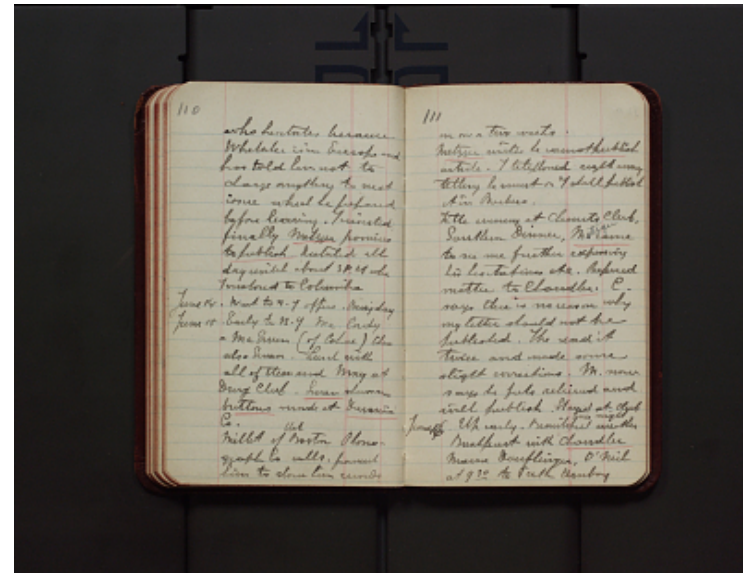 110
who hesitates because
Whitaker is in Europe and
has told him not to
change anything to next
issue which he prepared
before leaving. I insisted
finally Metzger promises
to publish. Dictated all
day until about 3 P.M. when
I motored to Columbia
June 14. Went to N.Y. office. Busy day
June 15. Early to N.Y. Mc Cordy
all of them and May at
Drug Club.
buttons made at
Co.
of Boston Phono-
graph Co calls.
him to show him records
111
in over two weeks.
Metzger writes he cannot publish
article. I telephoned right away
telling he must or I shall publish
it in
In the evening at Chemists Club,
Southern Dinner, M. came
to see me further expressing
his hesitations etc. Referred
matter to Chandler. C.
says there is no reason why
my letter should not be
published. He read it
twice and made some
slight corrections. M. now
says he feels relieved and
will publish. Stayed at Club
one night
June 16. Up early. Beautiful weather
Breakfast with Chandler
at 9 30 to